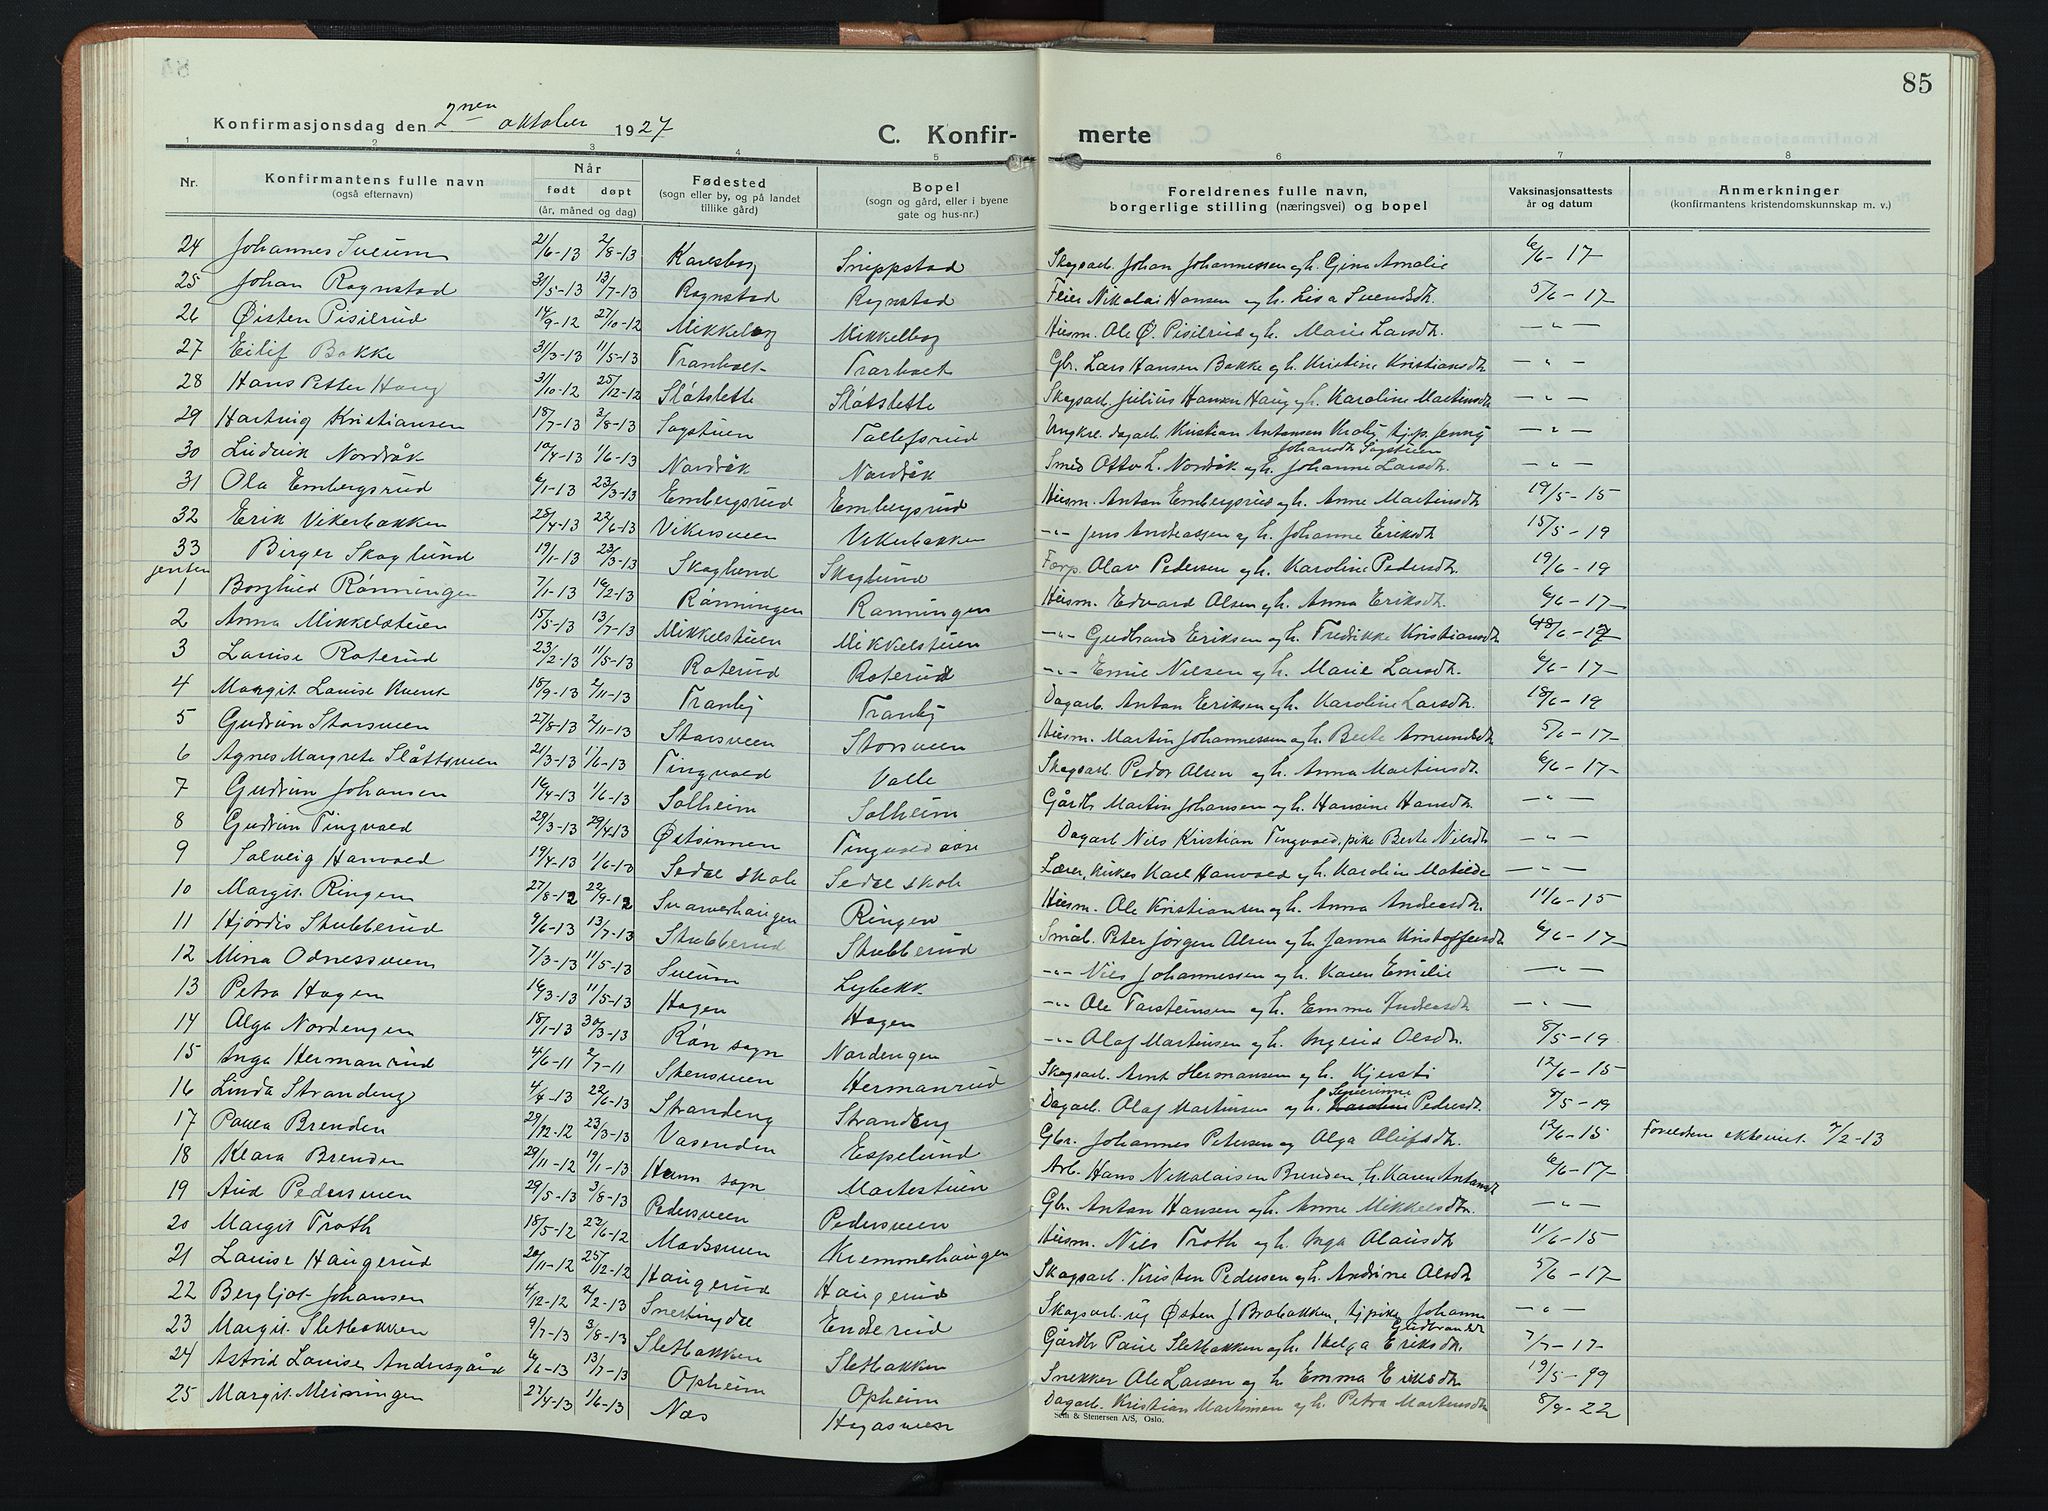 85
Konfirmasjonsdag den 2nen oktober 1927
C. Konfir- merte
1 2 3 4 5 6 7 8
Nr. Konfirmantens fulle navn (også efternavn) Når født døpt (år, måned og dag) Fødested (sogn eller by, og på landet tillike gård) Bopel (sogn og gård, eller i byene gate og hus-nr.) Foreldrenes fulle navn, borgerlige stilling (næringsvei) og bopel Vaksinasjonsattests år og datum Anmerkninger (konfirmantens kristendomskunnskap m. v.)
24 Johannes Sveum 21/6-13 2/8-13 Karlsborg Snippstad Skogsarb. Johan Johannessen og h. Gina Amalie 6/6-17
25 Johan Rognstad 31/5-13 13/7-13 Rognstad Rognstad Feier Nikolai Hansen og h. Lisa Svendsdt. 5/6-17
26 Øisten Pisilrud 14/9-12 27/10-12 Mikkelborg Mikkelborg Husm. Ole Ø. Pisilrud og h. Marie Larsdt. — " —
27 Eilif Bakke 31/3-13 11/5-13 Tranholt Tranholt Gbr. Lars Hansen Bakke og h. Kristine Kristiansdt. — " —
28 Hans Petter Haug 31/10-12 25/12-12 Slåtslette Slåtslette Skogsarb. Julius Hansen Haug og h. Karoline Martinsdt. — " —
29 Hartvig Kristiansen 18/7-13 3/8-13 Sagstuen Tollefsrud Ungkrl. dagarb. Kristian Antonsen Kroby tj.p. Jenny Johansdt. Sagstuen — " —
30 Ludvik Nordråk 10/4-13 1/6-13 Nordråk Nordråk Smed Otto L. Nordråk og h. Johanne Larsdt. — " —
31 Ola Embergsrud 6/1-13 23/3-13 Embergsrud Embergsrud Husm. Anton Embergsrud og h. Anne Martinsdt. 19/5-15
32 Erik Vikerbakken 25/4-13 22/6-13 Vikersveen Vikerbakken -"- Jens Andreassen og h. Johanne Eriksdt. 15/5-19
33 Birger Skoglund 19/1-13 23/3-13 Skoglund Skoglund Forp. Olav Pedersen og h. Karoline Pedersdt. 19/6-19
jenter
1 Borghild Rønningen 7/1-13 16/2-13 Rønningen Rønningen Husm. Edvard Olsen og h. Anna Eriksdt. 6/6-17
2 Anna Mikkelstuen 15/5-13 13/7-13 Mikkelstuen Mikkelstuen -"- Gudbrand Eriksen og h. Fredrikke Kristiansdt. 6/6-17
3 Louise Roterud 23/2-13 11/5-13 Roterud Roterud -"- Emil Nilsen og h. Marie Larsdt. 6/6-17
4 Margit Louise Kvent 18/9-13 2/11-13 Tranby Tranby Dagarb. Anton Eriksen og h. Karoline Larsdt. 18/6-19
5 Gudrun Storsveen 27/8-13 2/11-13 Storsveen Storsveen Husm. Martin Johannessen og h. Berte Amundsdt. 5/6-17
6 Agnes Margrete Slåttsveen 21/3-13 1/6-13 Tingvold Valle Skogsarb. Peder Olsen og h. Anna Martinsdt. 6/6-17
7 Gudrun Johansen 16/4-13 1/6-13 Solheim Solheim Gårdbr. Martin Johansen og h. Hansine Hansdt. — " —
8 Gudrun Tingvold 29/3-13 29/4-13 Østsinnen Tingvold Dagarb Nils Kristian Tingvold, pike Berte Nilsdt. — " —
9 Solveig Hanvold 19/4-13 1/6-13 Sedal skole Sedal skole Lærer, kirkes. Karl Hanvold og h. Karolin Matilde — " —
10 Margit Ringen 27/8-12 22/9-12 Snarverhaugen Ringen Husm. Ole Kristiansen og h. Anna Andersdt. 11/6-15
11 Hjørdis Stubberud 9/6-13 13/7-13 Stubberud Stubberud Småb. Peter Jørgen Olsen og h. Janna Kristoffersdt. 6/6-17
12 Mina Odnessveen 7/3-13 11/5-13 Sveum Lybekk -"- Nils Johannessen og h. Karen Emilie — " —
13 Petra Hagen 16/3-13 11/5-13 Hagen Hagen -"- Ole Torsteinsen og h. Emma Andersdt. — " —
14 Olga Nordengen 18/1-13 30/3-13 Røn sogn Nordengen -"- Olaf Martinsen og h. Ingrid Olsdt. 8/5-19
15 Inga Hermanrud 4/6-11 2/7-11 Stensveen Hermanrud Skogsarb. Arnt Hermansen og h. Kjersti 12/6-15
16 Linda Strandeng 4/4-13 22/6-13 Strandeng Strandeng Dagarb. Olaf Martinsen og h. Severinne Pedersdt. 8/5-19
17 Paula Brenden 29/12-12 23/3-13 Vasenden Espelund Gbr. Johannes Petersen og Olga Olufsdt. 12/6-15 Foreldrene ekteviet 7/2-13
18 Klara Brenden 29/11-12 19/1-13 Hunn sogn Martestuen Arb. Hans Nikolaisen Brenden, h. Karen Antonsdt. 6/6-17
19 Aud Pedersveen 29/5-13 3/8-13 Pedersveen Pedersveen Gbr. Anton Hansen og h. Anne Mikkelsdtr. — " —
20 Margit Troth 18/5-12 23/6-12 Madssveen Kremmerhaugen Husm. Nils Troth og h. Inga Olausdt. 11/6-15
21 Louise Haugerud 20/11-12 25/12-12 Haugerud Haugerud Skogsarb. Kristen Pedersen og h. Andrine Olsdt. 5/6-17
22 Bergljot Johansen 4/12-12 2/2-13 Snertingdal Enderud Skogsarb. ug Østen J Brobakken, tj.pike Johanne Gudbrandsdt. — " —
23 Margit Sletbakken 9/7-13 3/8-13 Sletbakken Sletbakken Gårdbr. Paul Sletbakken og h. Helga Eriksdt. 7/7-17
24 Astrid Louise Andersgård 6/6-13 13/7-13 Opheim Opheim Snekker Ole Larsen og h. Emma Eriksdt. 19/5-99
25 Margit Meiningen 27/4-13 1/6-13 Nas Hagasveen Dagarb. Kristian Martinsen og h. Petra Martinsdt. 8/9-22
Sem & Stenersen A/S, Oslo.